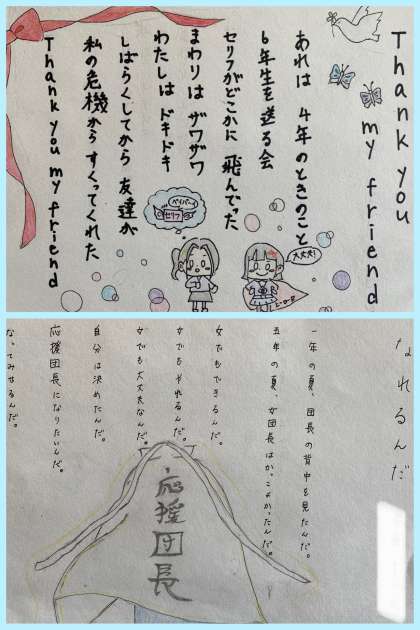 Thank you
my friend
あれは 4年のときのこと
6年生を送る会
セリフがどこかに 飛んでった
まわりは ザワザワ
わたしは ドキドキ
しばらくしてから 友達が
私の危機から すくってくれた
Thank you my friend
バイバーイ
セリフ
大丈夫!
ヒーロー
なれるんだ
一年の夏、団長の背中を見たんだ。
五年の夏、女団長はかっこよかったんだ。
女でもできるんだ。
女でもやれるんだ。
女でも大丈夫なんだ。
自分は決めたんだ。
応援団長になりたいんだ。
なってみせるんだ。
応援団長